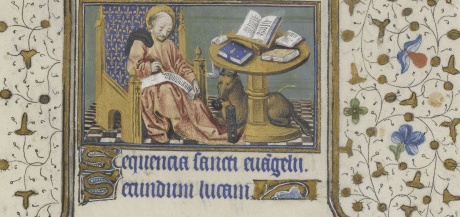 Sequencia sancti euãgelii.
Secundum lucam.